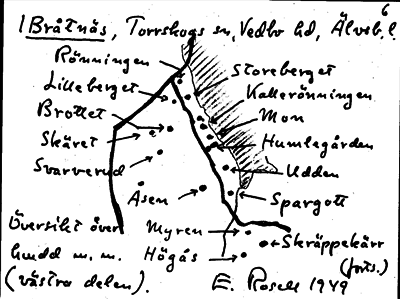 6
1 Bråtnäs, Torrskogs sn, Vedbo hd, Älvsb. l.
Rönningen
Storeberget
Lilleberget
Kallerönningen
Brottet
Mon
Skäret
Humlegården
Svarverud
Udden
Åsen
Spargott
Översikt över
Myren
Skräppekärr
hundd m. m.
Högås
(forts.)
(västra delen).
E. Rosell 1949